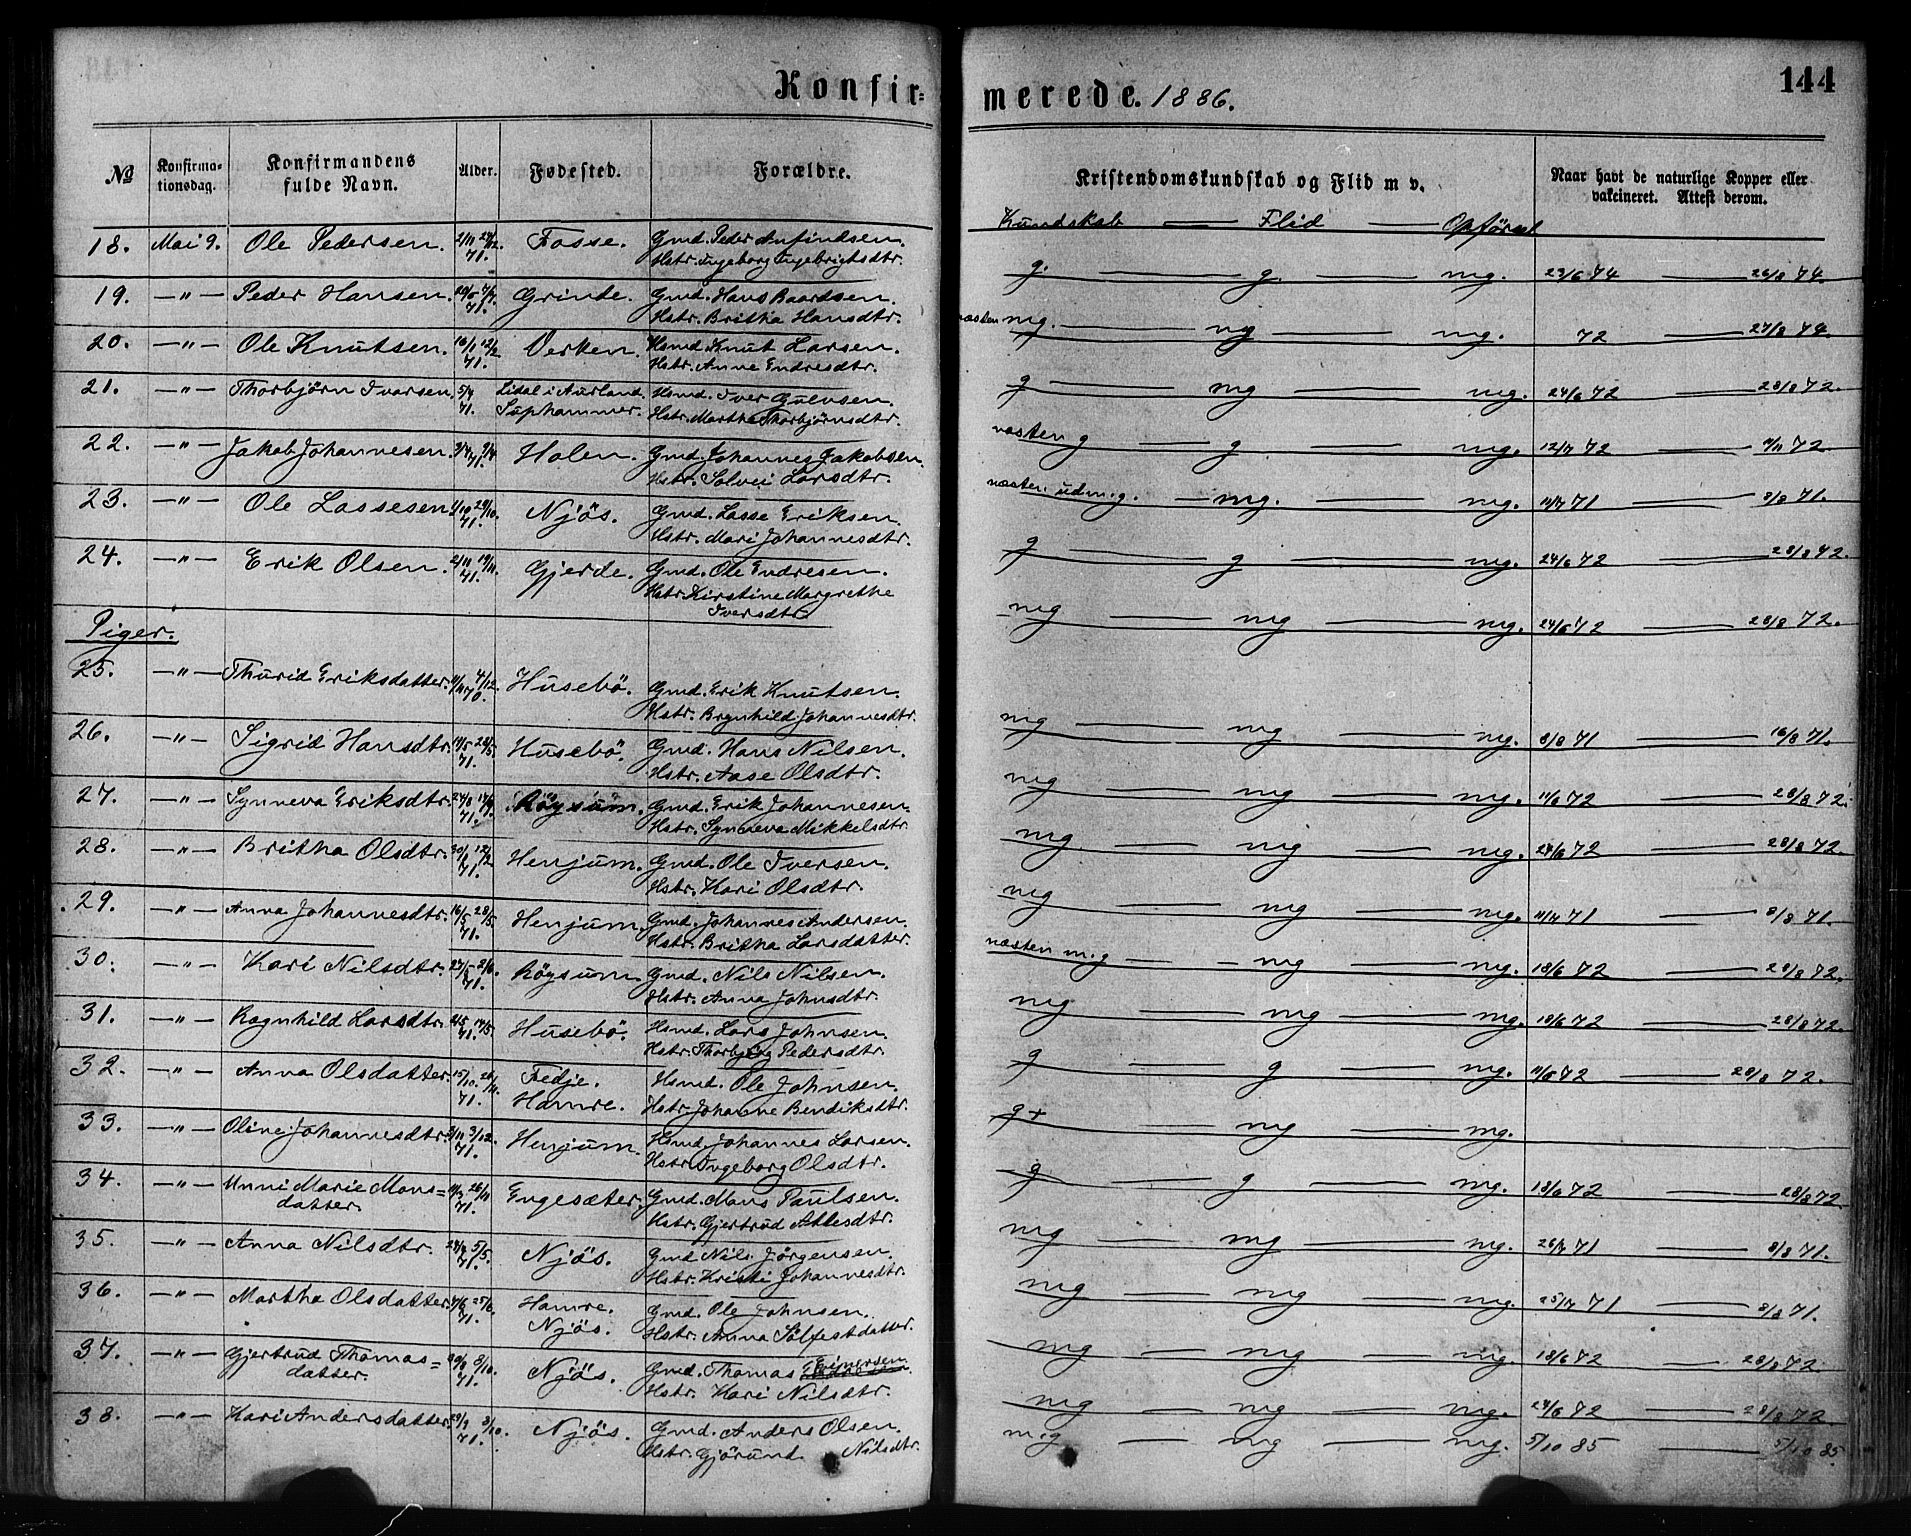 Konfir=
merede. 1886.
144
No
Konfirma-
tionsdag.
Konfirmandens
fulde Navn.
Alder.
Fødested.
Forældre.
Kristendomskundskab og Flid m v.
Naar havt de naturlige Kopper eller
vakcineret. Attest derom.
Kundskab — Flid — Opförsel
18. Mai 9. Ole Pedersen. 2/11 24/12 71. Fosse. Gmd. Peder Anfindsen.
Hstr. Ingeborg Ingebrigtsdtr.
g. — g. — mg. 23/6 74 — 26/8 74.
19. —"— Peder Hansen. 71. Grinde. Gmd. Hans Baardsen.
Hstr. Britha Hansdtr.
næsten mg. — mg — mg. 72 — 27/8 74.
20. —"— Ole Knutsen. 71. Verken. Hsmd. Knut Larsen.
Hstr. Anne Endresdtr.
g — mg — mg. 24/6 72 — 28/8 72.
21. —"— Thorbjörn Ivarsen. 5/4 71. Lidal i Aurland.
Suphammer. Hsmd. Iver
Hstr. Martha Thorbjörnsdtr.
næsten g — g — mg. 12/7 72 — 72.
22. —"— Jakob Johannesen. 3/4 9/4 71. Holen. Gmd. Johannes Jakobsen.
Hstr. Solvei Larsdtr.
næsten udm.g. — mg. — mg. 11/7 71 — 8/8 71.
23. —"— Ole Lassesen. 29/10. 71. Njös. Gmd. Lasse Eriksen.
Hstr. Mari Johannesdtr.
g — g — mg. 24/6 72 — 28/8 72.
24. —"— Erik Olsen. 2/11 19/11. 71. Gjerde. Gmd. Ole Endresen.
Hstr. Kirstine Margrethe
Iversdtr.
mg — mg — mg. 24/6 72 — 28/8 72.
Piger.
25. —"— Thurid Eriksdatter. 4/12. 70. Husebö. Gmd. Erik Knutsen.
Hstr. Brynhild Johannesdtr.
mg — mg — mg. 8/8 71 — 16/8 71.
26. —"— Sigrid Hansdtr. 71. Husebö. Gmd. Hans Nilsen.
Hstr. Aase Olsdtr.
mg — mg — mg. 11/6 72 — 28/8 72.
27. —"— Synneva Eriksdtr. 71. Röysum. Gmd. Erik Johannesen
Hstr. Synneva Mikkelsdtr.
mg — mg — mg. 24/6 72 — 28/8 72.
28. —"— Britha Olsdtr. 71. Henjum. Gmd. Ole Iversen.
Hstr. Kari Olsdtr.
mg — mg — mg. 11/7 71 — 8/8 71.
29. —"— Anna Johannesdtr. 16/5 28/5. 71. Henjum. Gmd. Johannes Andersen.
Hstr. Britha Larsdatter.
næsten m.g — mg — mg. 18/6 72 — 28/8 72.
30. —"— Kari Nilsdtr. 71. Röysum. Gmd. Nils Nilsen.
Hstr. Anna Johnsdtr.
mg — mg — mg. 18/6 72 — 28/8 72.
31. —"— Ragnhild Larsdtr. 71. Husebö. Hsmd. Lars Johnsen.
Hstr. Thorbjörg Pedersdtr.
g — g — mg. 11/6 72 — 28/8 72.
32. —"— Anna Olsdatter. 15/10. 71. Fedje.
Hamre. Hsmd. Ole Johnsen.
Hstr. Johanne Bendiksdtr.
g+ — mg — mg.
33. —"— Oline Johannesdtr. 3/12. 71. Henjum. Hsmd. Johannes Larsen.
Hstr. Ingeborg Olsdtr.
g — g — mg. 18/6 72 — 28/8 72.
34. —"— Unni Marie Mons=
datter. 26/11 71. Engesæter. Gmd. Mons Paulsen.
Hstr. Gjertrud Atlesdtr.
mg — mg — mg. 26/7 71 — 8/8 71.
35. —"— Anna Nilsdtr. 5/5. 71. Njös. Gmd Nils Jörgensen.
Hstr. Kristi Johannesdtr.
mg — mg — mg. 25/7 71 — 8/8 71.
36. —"— Martha Olsdatter. 25/6. 71. Hamre.
Njös. Gmd. Ole Johnsen.
Hstr. Anna Sölfestdatter.
mg — mg — mg. 18/6 72 — 28/8 72
37. —"— Gjertrud Thomas=
datter. 8/10. 71. Njös. Gmd. Thomas
Hstr. Kari Nilsdtr.
mg — mg — mg. 24/6 72 — 28/8 72.
38. —"— Kari Andersdatter. 8/10. 71. Njös. Gmd. Anders Olsen.
Hstr. Gjörund Nilsdtr.
m.g — mg — mg. 5/10 85 — 5/10 85.